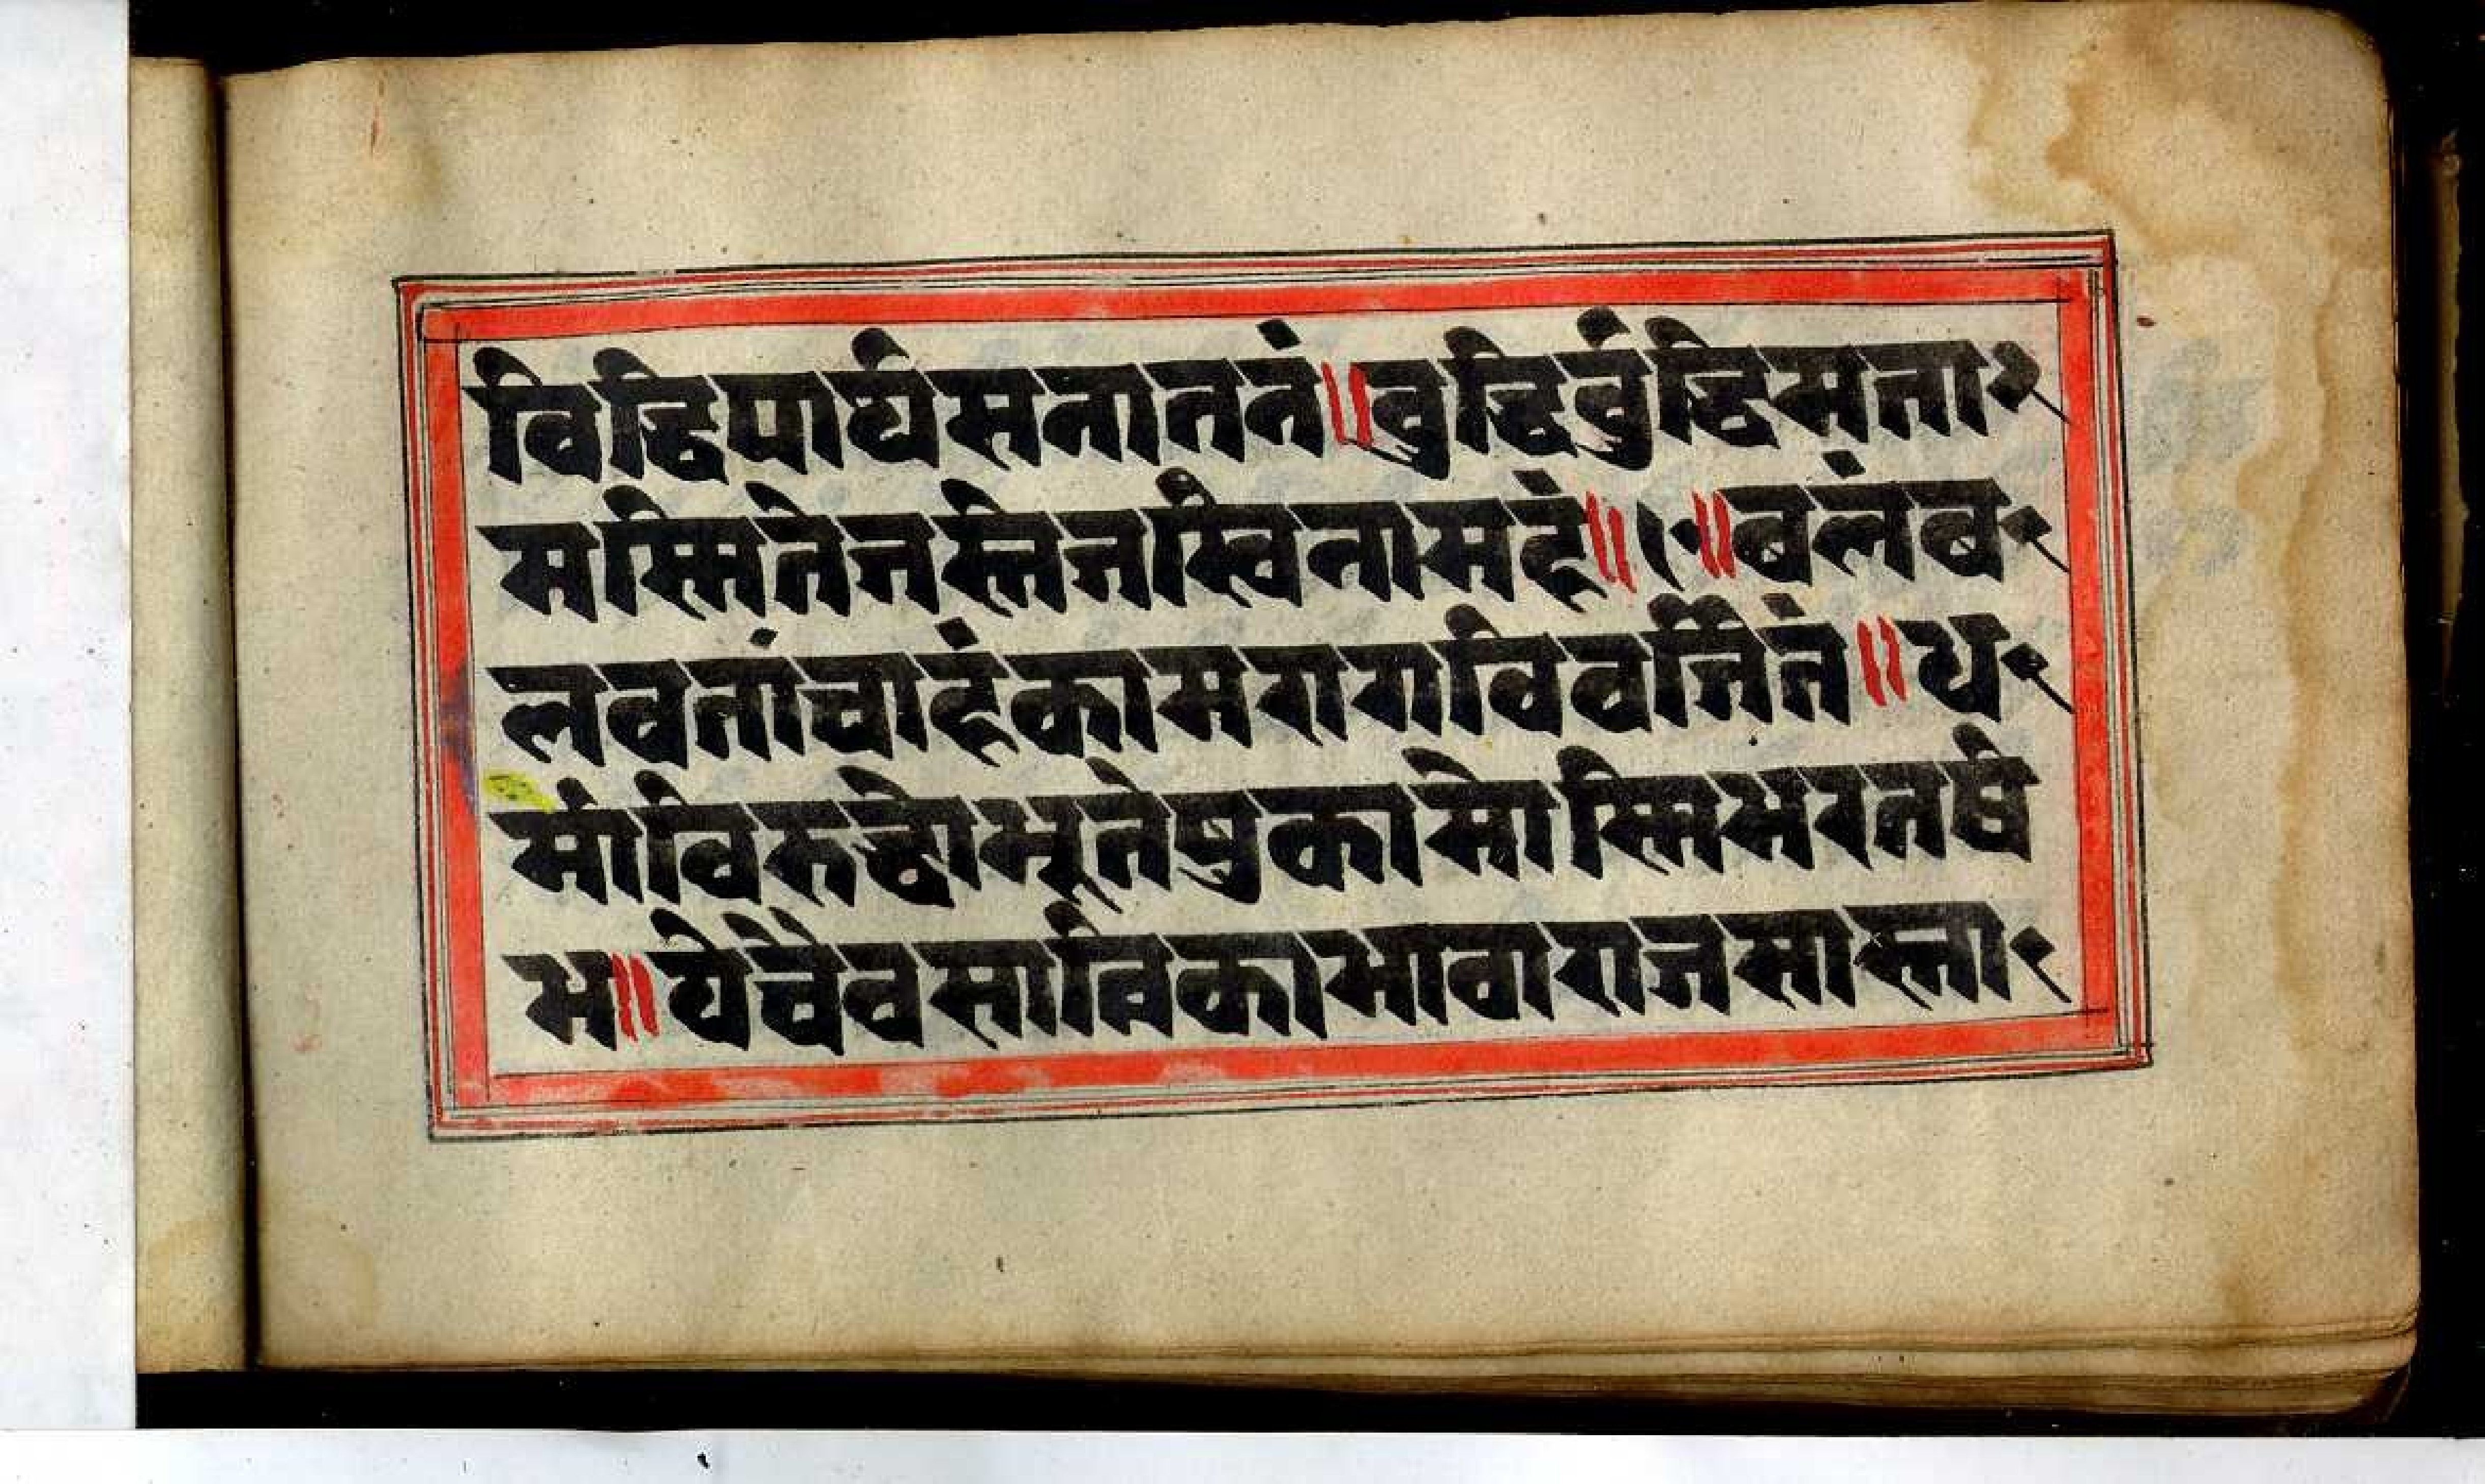 विद्धिपार्थसनातनं॥बुद्धिर्बुद्धिमत्ता
मस्मितेजस्तेजस्विनामहं॥१०॥बलंब
लवतांचाहंकामरागविवर्जितं॥ध
र्माविरुद्धोभूतेषुकामोस्मिभरतर्षे
भ॥येचैवसात्विकाभावाराजसास्ता